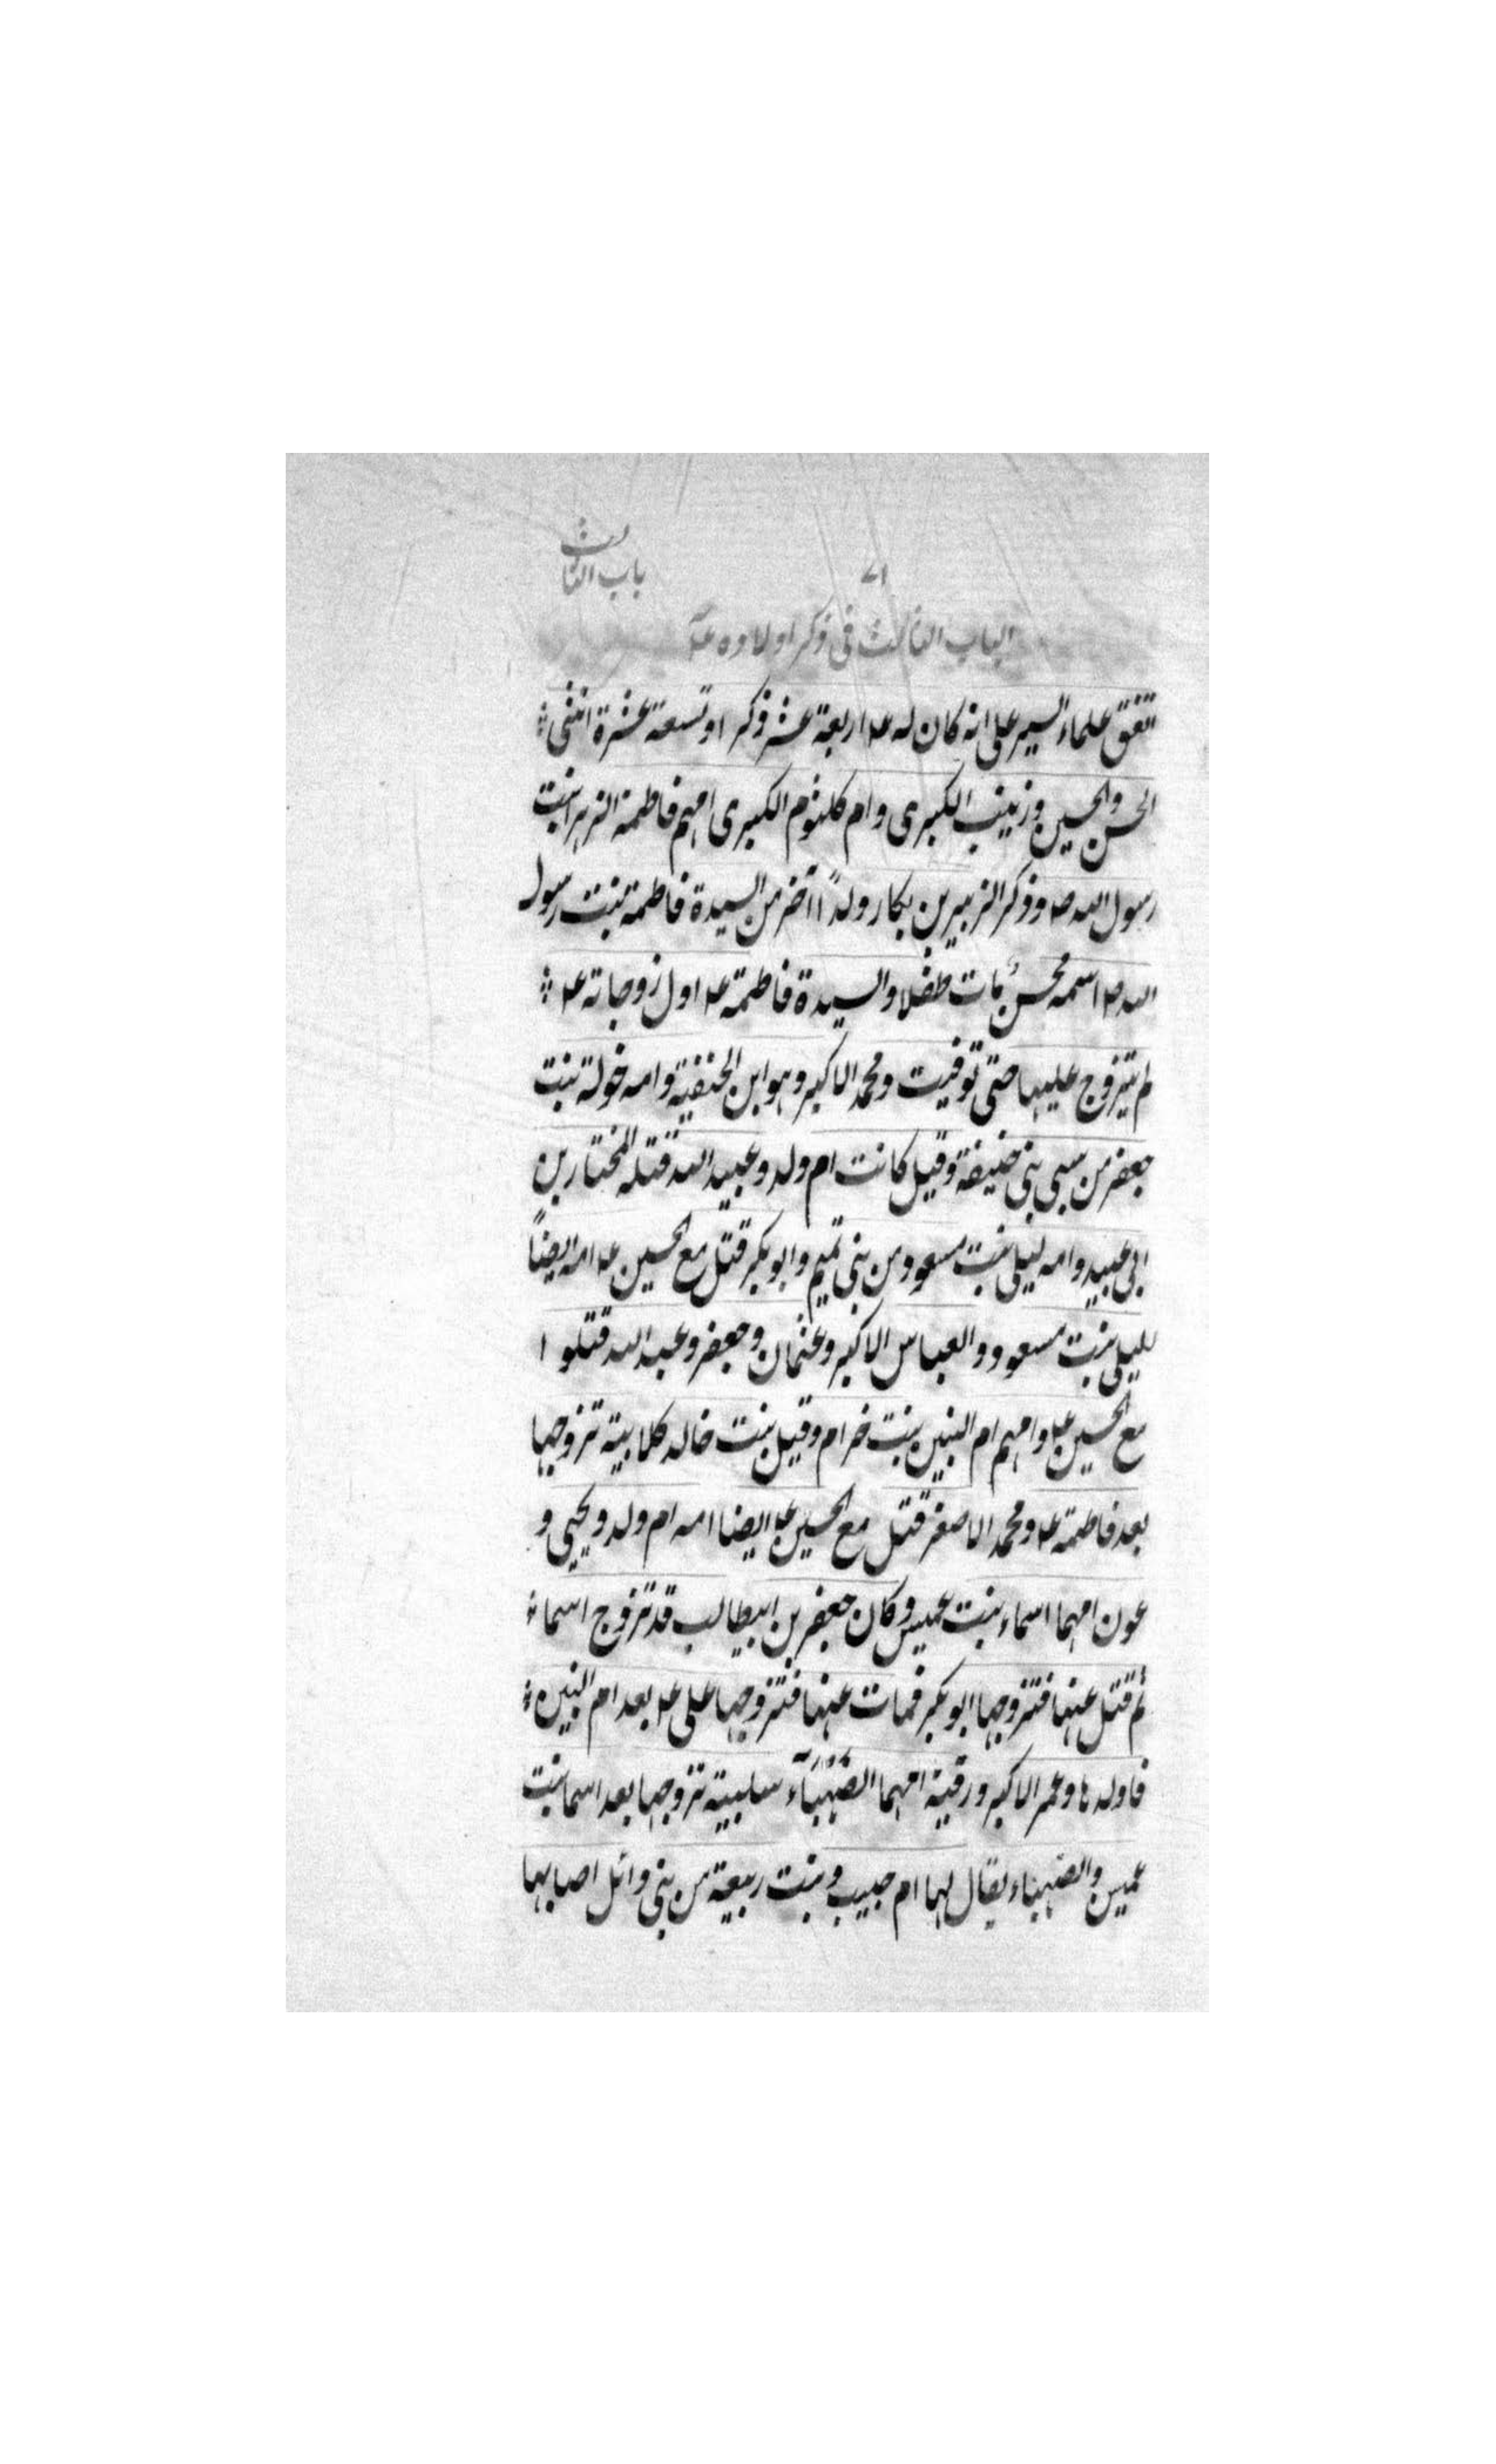 باب الثالث
٧١
الباب الثالث فى ذكر اولاده ع
اتفق علماء السير على انه كان له ع اربعة عشر ذكرا وتسعة عشرة انثى
الحسن والحسين وزينب الكبرى وام كلثوم الكبرى امهم فاطمة الزهرا بنت
رسول الله ص وذكر الزبير بن بكار ولدًا اخر من السيدة فاطمة بنت رسول
الله ص اسمه محسن مات طفلا والسيدة فاطمة ع اول زوجاته ع
لم يتزوج عليها حتى توفيت ومحمد الاكبر وهو ابن الحنفية وامه خولة بنت
جعفر من سبى بنى حنيفة وقيل كانت ام ولد وعبيد الله قتله المختار بن
ابى عبيد وامه ليلى بنت مسعود من بنى تميم وابو بكر قتل مع الحسين ع امه ايضاً
ليلى بنت مسعود والعباس الاكبر وعثمان وجعفر وعبد الله قتلوا
مع الحسين ع وامهم ام البنين بنت خرام وقيل بنت خالد كلابية تزوجها
بعد فاطمة ع ومحمد الاصغر قتل مع الحسين ع ايضا امه ام ولد ويحيى و
عون امهما اسماء بنت عميس وكان جعفر بن ابيطالب قد تزوج اسماء
ثم قتل عنها فتزوجها ابو بكر فمات عنها فتزوجها على ع بعد ام البنين
فاولدها وعمر الاكبر ورقية امهما الصَّهْبَآء سلبية تزوجها بعد اسما بنت
عميس والصهباء يقال لها ام حبيب وبنت ربيعة من بنى وائل اصابها